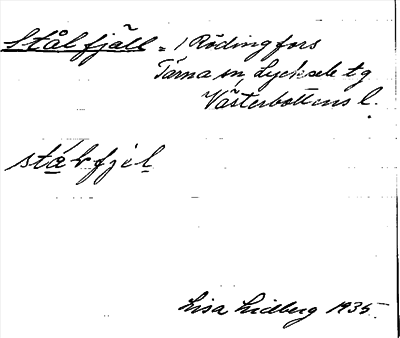 Stålfjäll = i Rödingfors
Tärna sn, Lycksele tg
Västerbottens l.
stákfjel
Lisa Lidberg 1935.